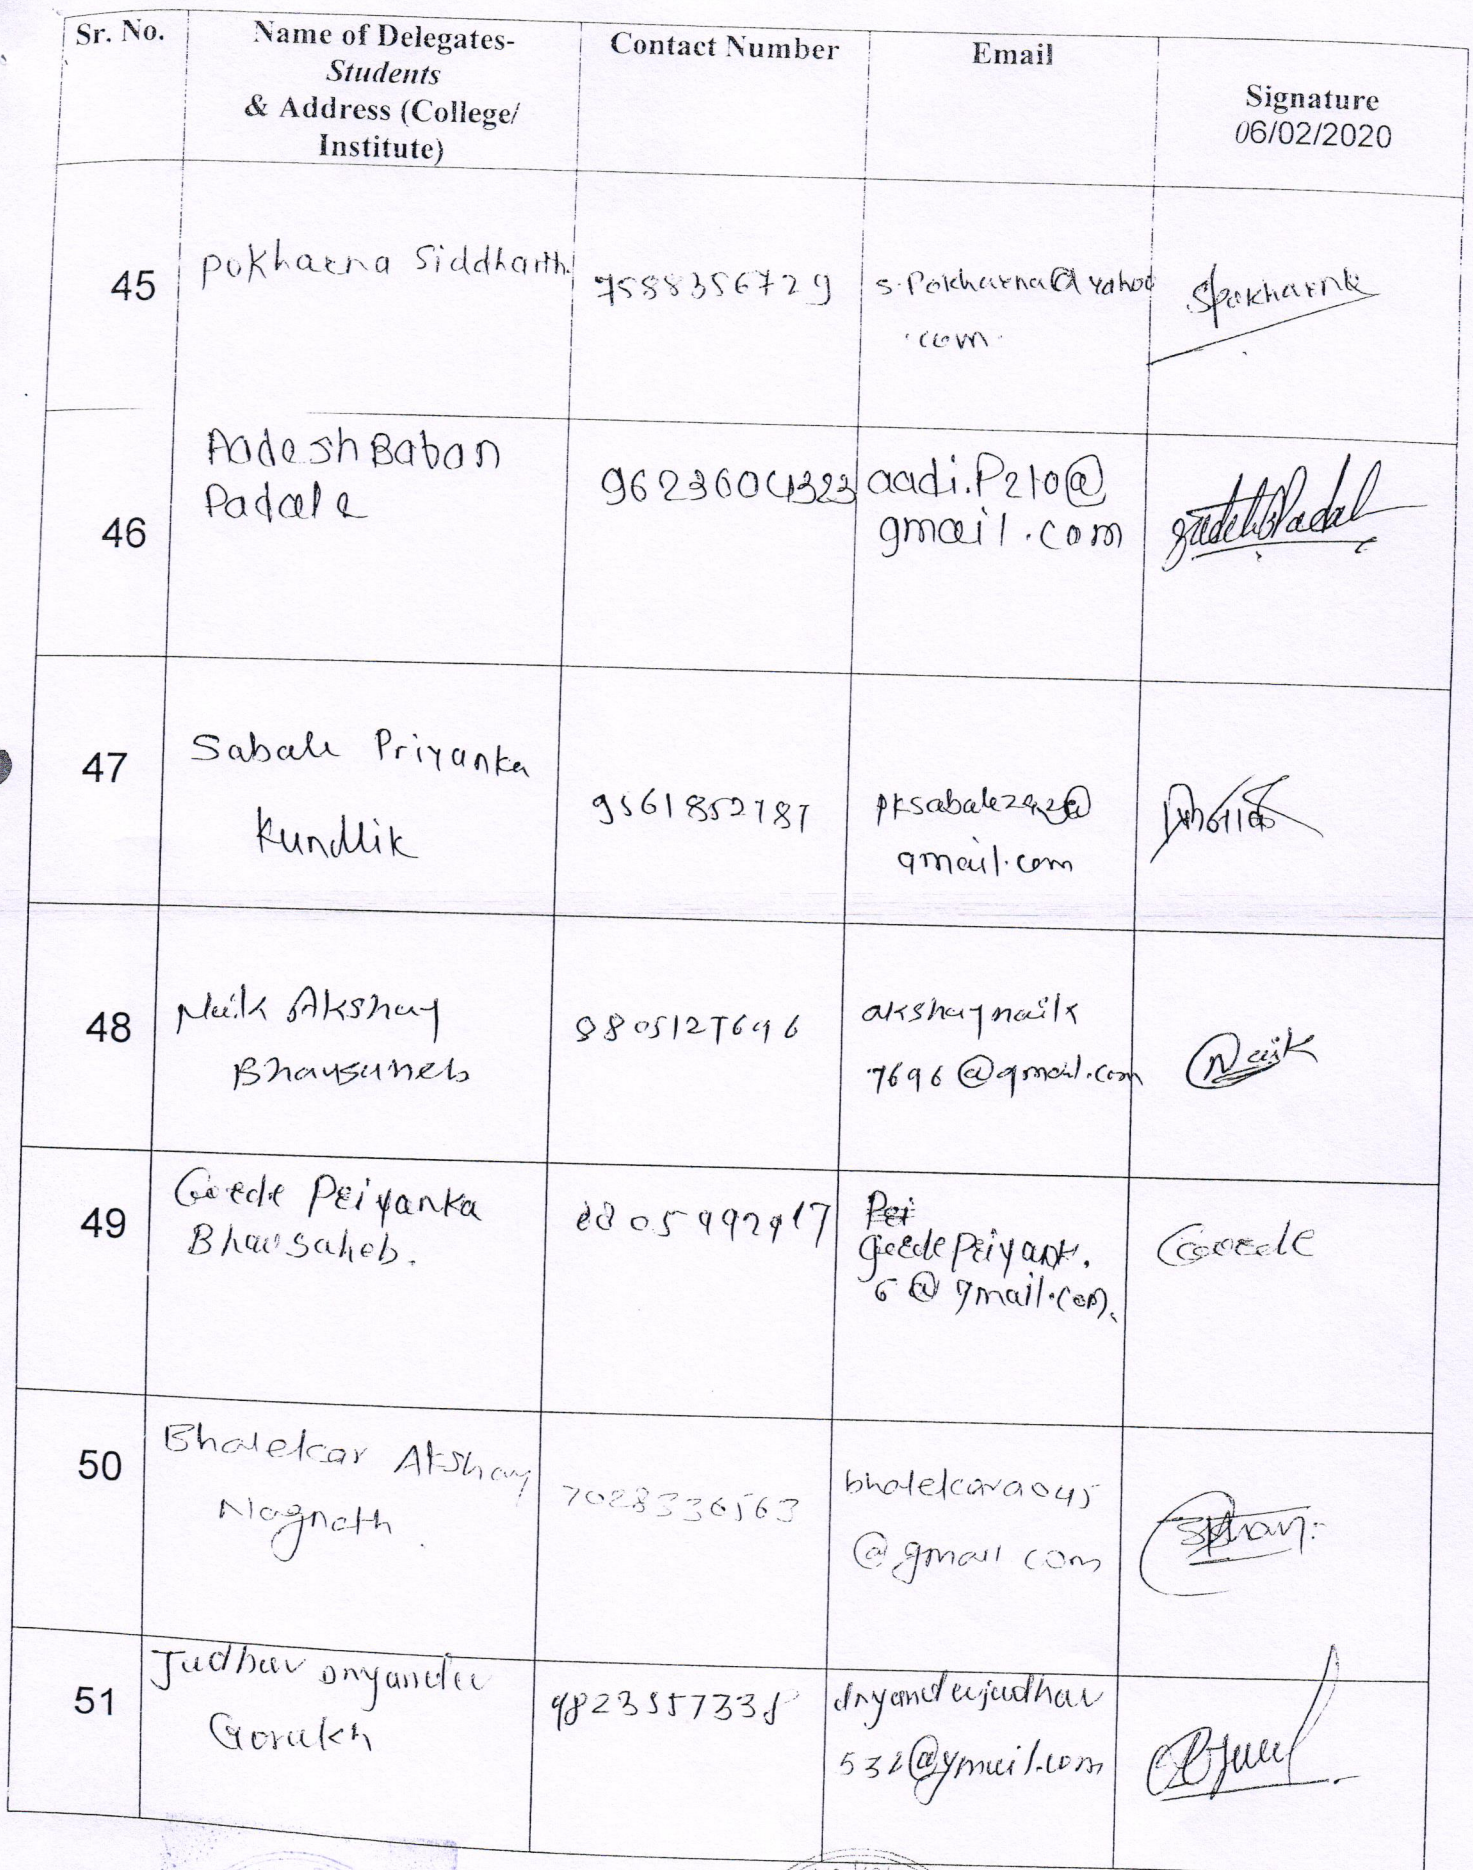 Sr. No.
Name of Delegates-
Students
& Address (College/
Institute)
Contact Number
Email
Signature
06/02/2020
45
Pokharna Siddharth.
7588356729
s.Pokharna@yahoo
.com.
Spokharna
46
Aadesh Baban
Padale
9623604323
aadi.P210@
gmail.com
47
Sabale Priyanka
Kundlik
9561852787
gmail.com
48
Naik Akshay
Bhausaheb
8805127696
akshaynaik
7696@gmail.com
Naik
49
Gorde Priyanka
Bhausaheb.
8805992917
gordepriyank.
6@gmail.com.
Gorde
50
Bhalekar Akshay
Nagnath.
7028336563
bhalekara045
@gmail.com
51
Jadhav Dnyandev
Gorakh
9823557338
dnyandevjadhav
532@gmail.com